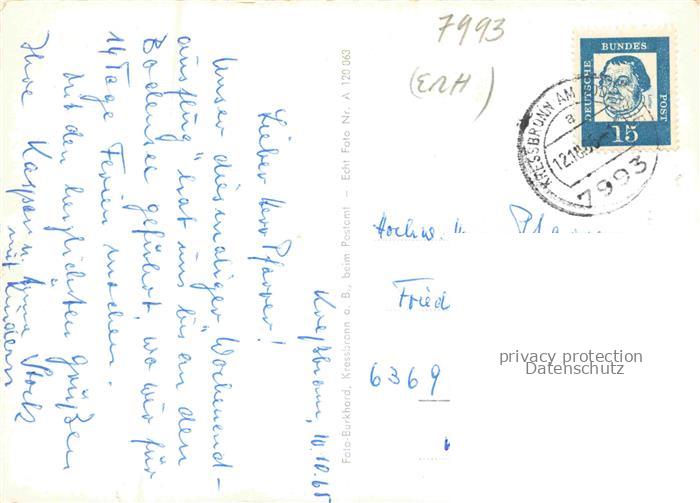 Kreßbronn, 10.10.65
Lieber Herr Pfarrer!
Unser diesmaliger "Wochenend-
ausflug" hat uns bis an den
Bodensee geführt, wo wir für
14 Tage Ferien machen.
Mit den herzlichsten Grüßen
Ihre Kaspar u. Anna Stock
mit Kindern
Foto-Burkhard, Kressbronn a. B., beim Postamt – Echt Foto Nr. A 120 063
7993
(ERH)
DEUTSCHE
BUNDES
POST
15
KRESSBRONN AM
a
7993
Hochw. H.
Fried
6369
privacy protection
Datenschutz